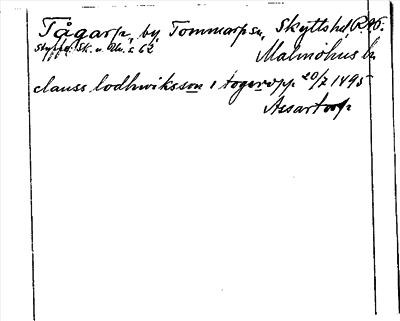 Tågarp, by, Tommarp sn, Skytts hd R.96.
Styffe: Sk. u. Un. s 62 Malmöhus l.
clauss lodhwiksson i togeropp 20/7 1495
Assartorp